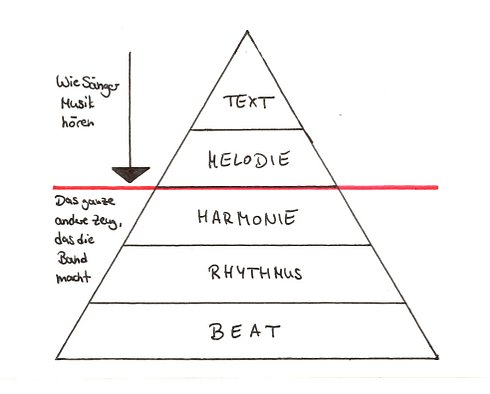 Wie Sänger
Musik
hören
TEXT
MELODIE
Das ganze
andere Zeug,
das die
Band
macht
HARMONIE
RHYTHMUS
BEAT